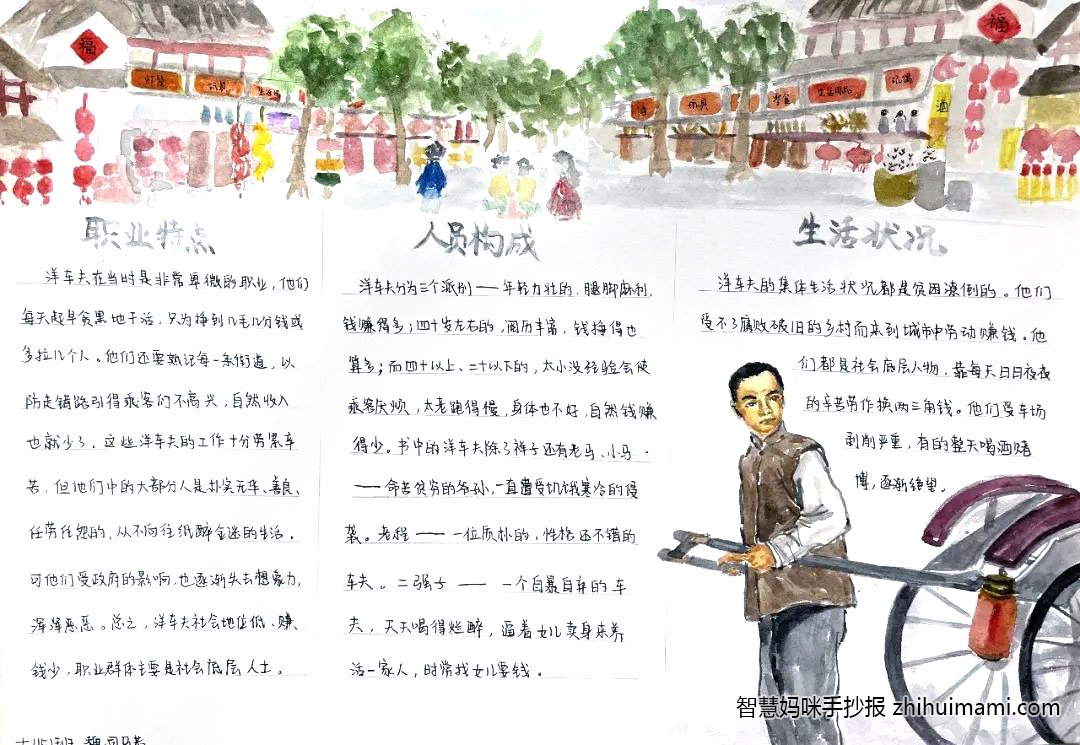 福
玩具
福
玩具
零食
生活用品
酒
职业特点
洋车夫在当时是非常卑微的职业，他们
每天起早贪黑地干活，只为挣到几毛几分钱或
多拉几个人。他们还要熟记每一条街道，以
防走错路引得乘客们不高兴，自然收入
也就少了．这些洋车夫的工作十分劳累车
苦，但他们中的大部分人是朴实无华、善良、
任劳任怨的，从不向往纸醉金迷的生活．
可他们受政府的影响，也逐渐失去想象力，
浑浑恶恶。总之，洋车夫社会地位低、赚、
钱少，职业群体主要是社会底层人士。
人员构成
洋车夫分为三个派别——年轻力壮的，腿脚麻利，
钱赚得多；四十岁左右的，阅历丰富，钱挣得也
算多；而四十以上、二十以下的，太小没经验会使
乘客厌烦，太老跑得慢，身体也不好，自然钱赚
得少。书中的洋车夫除了祥子还有老马、小马．
——命苦贫穷的爷孙，一直遭受饥饿寒冷的侵
袭。老程——一位质朴的，性格还不错的
车夫。二强子——一个自暴自弃的车
夫，天天喝得烂醉，逼着女儿卖身来养
活一家人，时常找女儿要钱。
生活状况
洋车夫的集体生活状况都是贫困潦倒的。他们
受不了腐败破旧的乡村而来到城市中劳动赚钱。他
们都是社会底层人物，靠每天日日夜夜
的辛苦劳作换两三角钱。他们受车场
剥削严重，有的整天喝酒赌
博，逐渐绝望．
智慧妈咪手抄报 zhihuimami.com